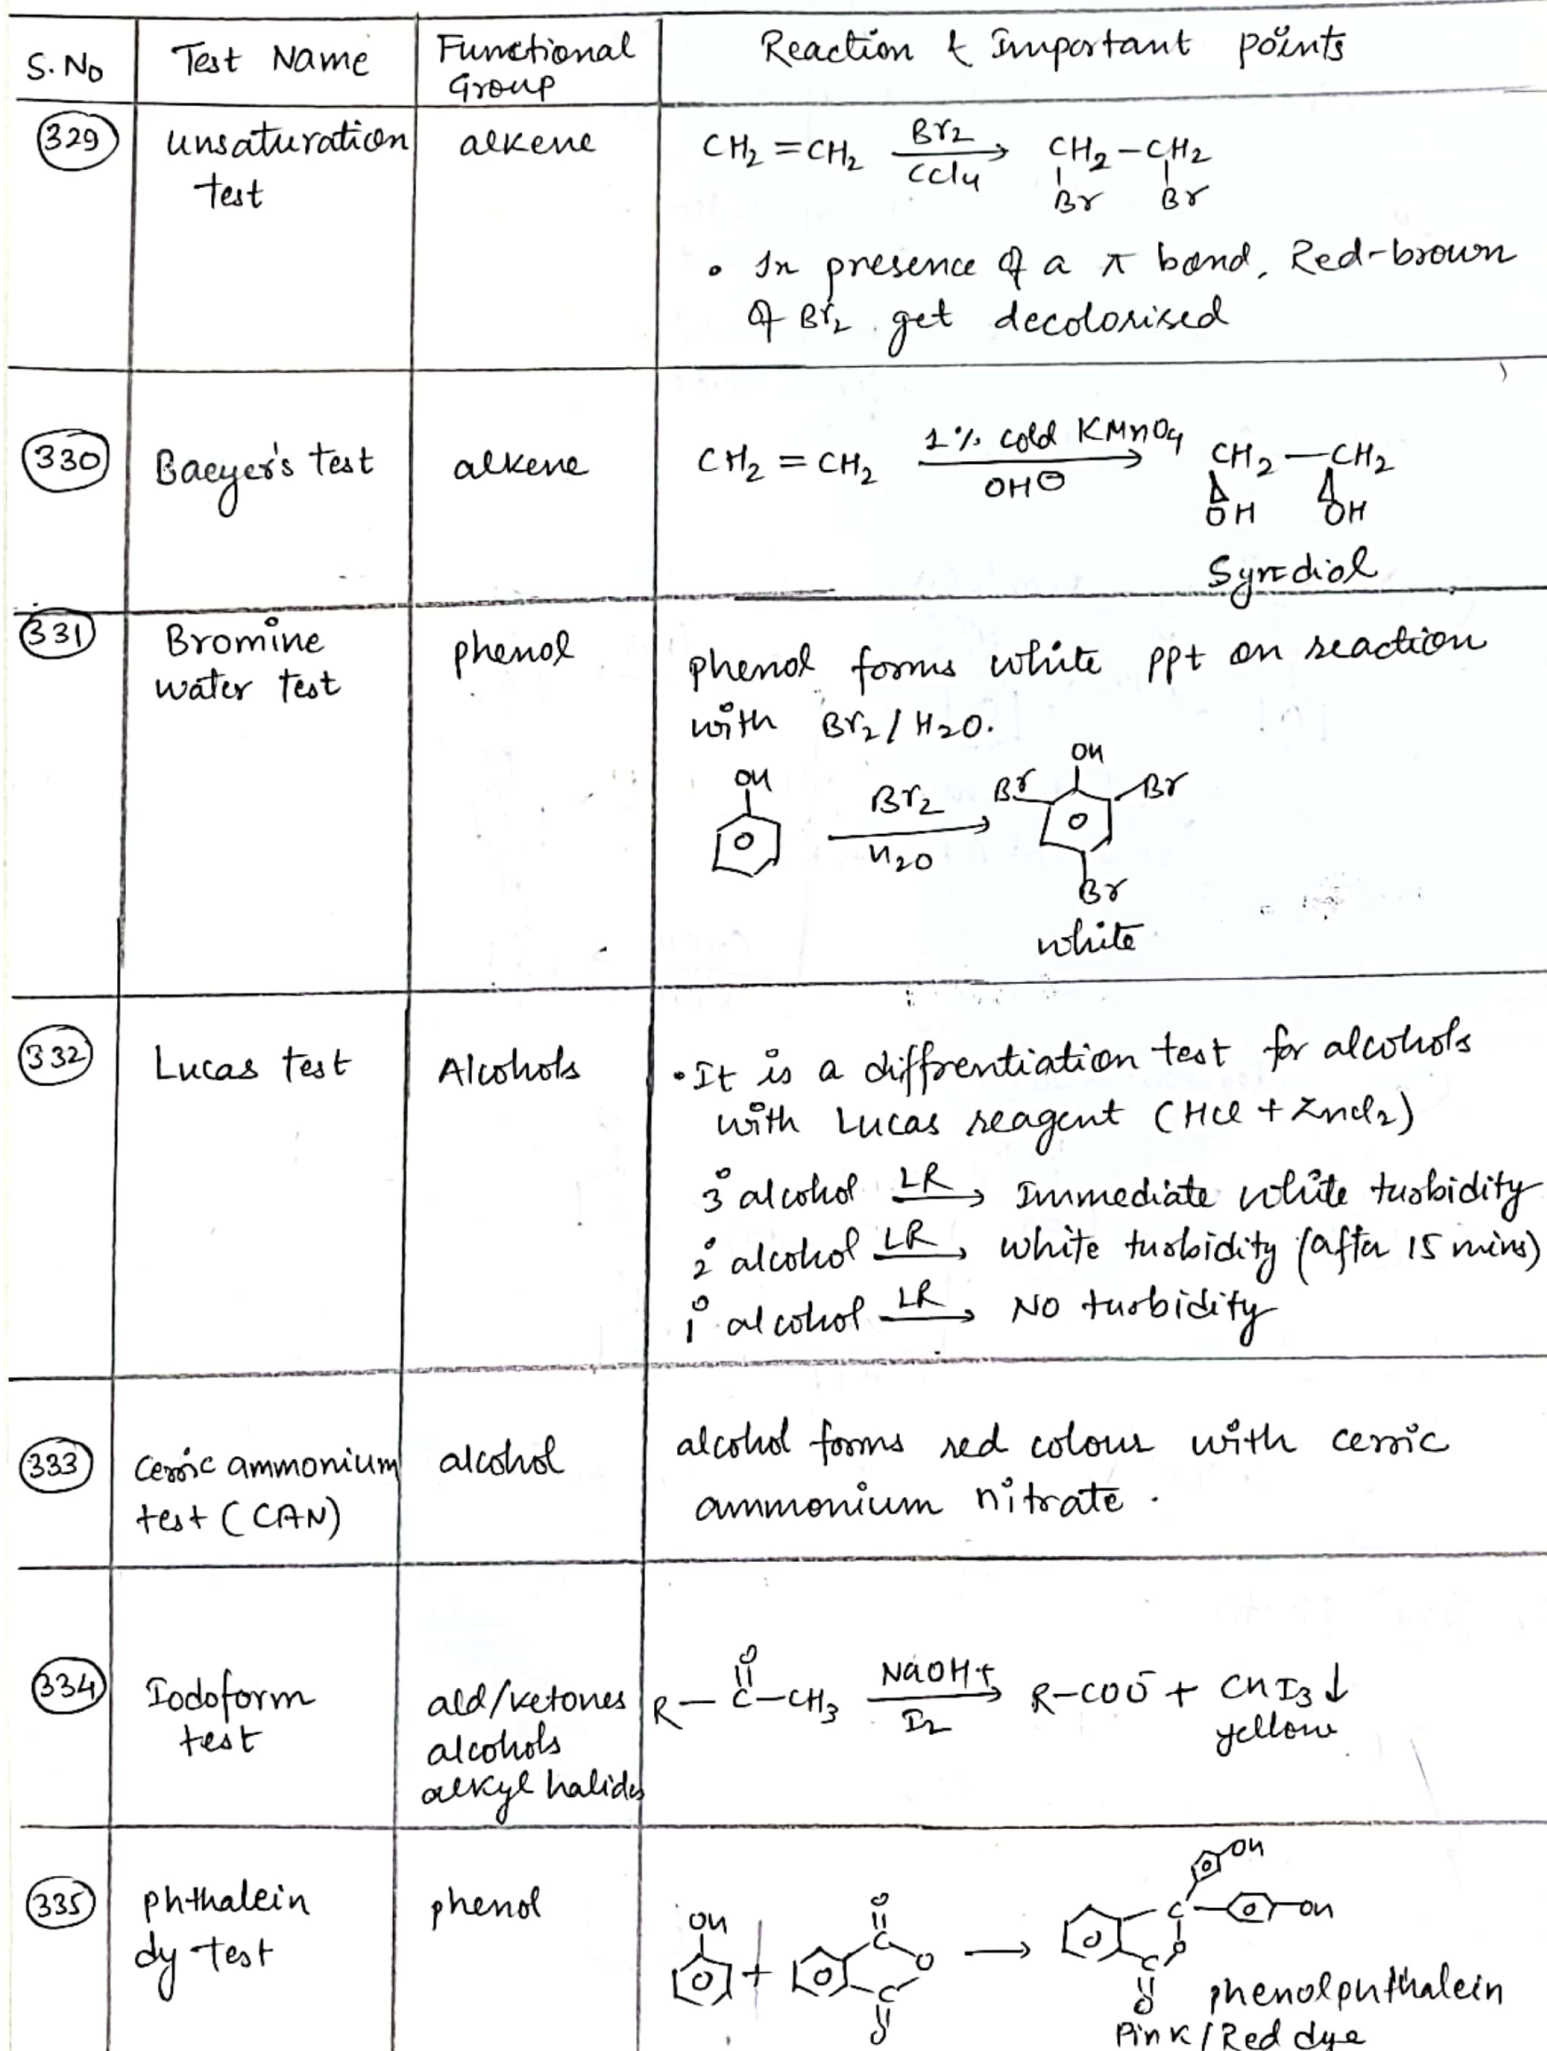 S.No Test Name Functional Group Reaction & Important points
329 unsaturation test alkene
CH2 = CH2 Br2 / CCl4 → CH2 – CH2
Br Br
• In presence of a π bond, Red-brown
of Br2 get decolorised
330 Baeyer's test alkene
CH2 = CH2 1% cold KMnO4 / OH⊖ → CH2 – CH2
OH OH
Syn diol
331 Bromine water test phenol
phenol forms white ppt on reaction
with Br2 / H2O.
OH Br2 / H2O → OH Br Br
Br
white
332 Lucas test Alcohols
• It is a diffrentiation test for alcohols
with Lucas reagent (HCl + ZnCl2)
3° alcohol LR → Immediate white turbidity
2° alcohol LR → white turbidity (after 15 mins)
1° alcohol LR → No turbidity
333 Cerric ammonium test (CAN) alcohol
alcohol forms red colour with cerric
ammonium nitrate.
334 Iodoform test ald/ketones alcohols alkyl halides
O
R – C – CH3 NaOH + / I2 → R–COO⁻ + CHI3 ↓
yellow
335 phthalein dy test phenol
OH + O C O C O → OH
C OH
O C O
phenolphthalein
Pink / Red dye